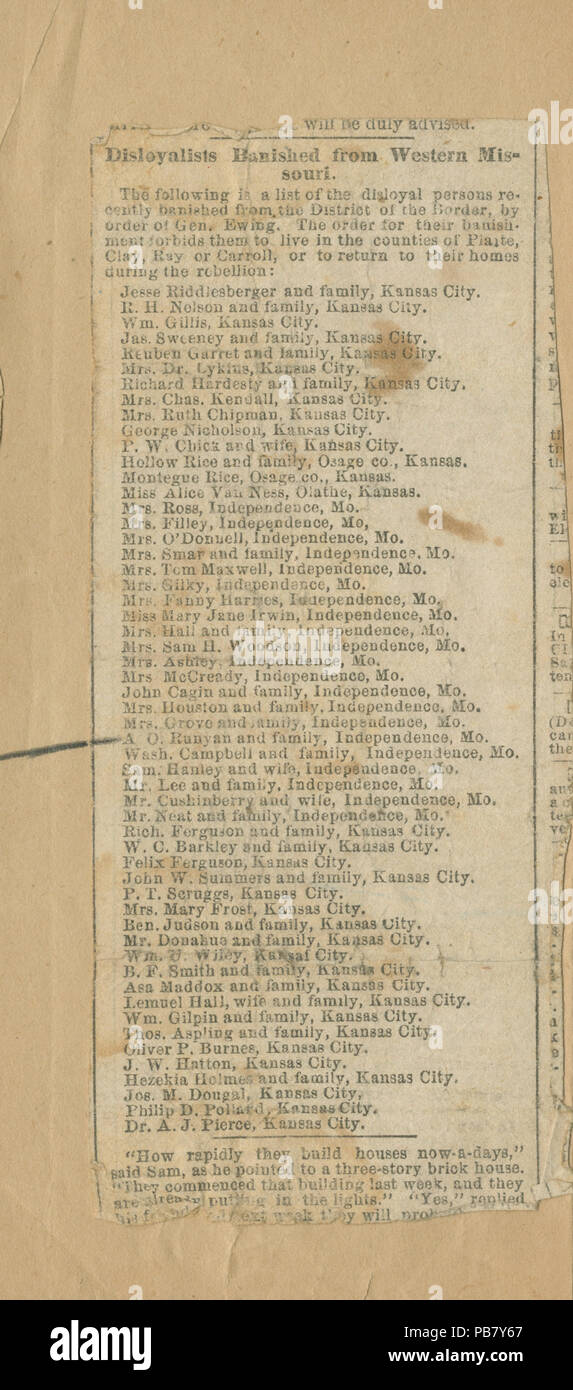 will be duly advised.
Disloyalists Banished from Western Mis-
souri.
The following is a list of the disloyal persons re-
cently banished from the District of the Border, by
order of Gen. Ewing. The order for their banish-
ment forbids them to live in the counties of Platte,
Clay, Ray or Carroll, or to return to their homes
during the rebellion:
Jesse Riddlesberger and family, Kansas City.
R. H. Nelson and family, Kansas City.
Wm. Gillis, Kansas City.
Jas. Sweeney and family, Kansas City.
Reuben Garret and family, Kansas City.
Mrs. Dr. Lykins, Kansas City.
Richard Hardesty and family, Kansas City.
Mrs. Chas. Kendall, Kansas City.
Mrs. Ruth Chipman, Kansas City.
George Nicholson, Kansas City.
P. W. Chick and wife, Kansas City.
Hollow Rice and family, Osage co., Kansas.
Montegue Rice, Osage co., Kansas.
Miss Alice Van Ness, Olathe, Kansas.
Mrs. Ross, Independence, Mo.
Mrs. Filley, Independence, Mo,
Mrs. O'Donnell, Independence, Mo.
Mrs. Smar and family, Independence, Mo.
Mrs. Tom Maxwell, Independence, Mo.
Mrs. Gilky, Independence, Mo.
Mrs. Fanny Harries, Independence, Mo.
Miss Mary Jane Irwin, Independence, Mo.
Mrs. Hall and family, Independence, Mo.
Mrs. Sam H. Woodson, Independence, Mo.
Mrs. Ashley, Independence, Mo.
Mrs McCready, Independence, Mo.
John Cagin and family, Independence, Mo.
Mrs. Houston and family, Independence, Mo.
Mrs. Grove and family, Independence, Mo.
A. O. Runyan and family, Independence, Mo.
Wash. Campbell and family, Independence, Mo.
Sam. Hanley and wife, Independence, Mo.
Mr. Lee and family, Independence, Mo.
Mr. Cushinberry and wife, Independence, Mo.
Mr. Neat and family, Independence, Mo.
Rich. Ferguson and family, Kansas City.
W. C. Barkley and family, Kansas City.
Felix Ferguson, Kansas City.
John W. Summers and family, Kansas City.
P. T. Scruggs, Kansas City.
Mrs. Mary Frost, Kansas City.
Ben. Judson and family, Kansas City.
Mr. Donahue and family, Kansas City.
Wm. U. Wiley, Kansas City.
B. F. Smith and family, Kansas City.
Asa Maddox and family, Kansas City.
Lemuel Hall, wife and family, Kansas City.
Wm. Gilpin and family, Kansas City.
Thos. Aspling and family, Kansas City.
Oliver P. Burnes, Kansas City.
J. W. Hatton, Kansas City.
Hezekia Holmes and family, Kansas City.
Jos. M. Dougal, Kansas City,
Philip D. Pollard, Kansas City.
Dr. A. J. Pierce, Kansas City.
"How rapidly they build houses now-a-days,"
said Sam, as he pointed to a three-story brick house.
"They commenced that building last week, and they
are already putting in the lights." "Yes," replied
week they will
alamy
Image ID: PB7Y67
www.alamy.com